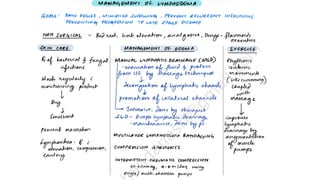 MANAGEMENT OF LYMPHOEDEMA
GOALS: PAIN RELIEF, MINIMISE SWELLING, PREVENT RECURRENT INFECTIONS
PREVENTING PROGRESSION TO LATE STAGE DISEASE
NON SURGICAL - Bed rest, limb elevation, analgesics, Drugs - flavonoids
SKIN CARE
MANAGEMENT OF EDEMA
EXERCISE
of bacterial & fungal
infections
Wash regularly c̄
moisturising product
Dry
Emollient
Prevent maceration
elevation, compression,
MANUAL LYMPHATIC DRAINAGE (MLD)
evacuation of fluid & protein
from ISS by massage technique
decongestion of lymphatic channels
promotion of collateral channels
Intensive, done by therapist
SLD - Simple lymphatic drainage
- maintenance, done by pt
MULTILAYER LYMPHOEDEMA BANDAGING
COMPRESSION GARMENTS
INTERMITTENT PNEUMATIC COMPRESSION
single/multi chamber pumps
Rhythmic
isotonic
movements
(swimming)
Coupled
with
massage
improves
lymphatic
drainage by
augmentation
of muscle
pumps